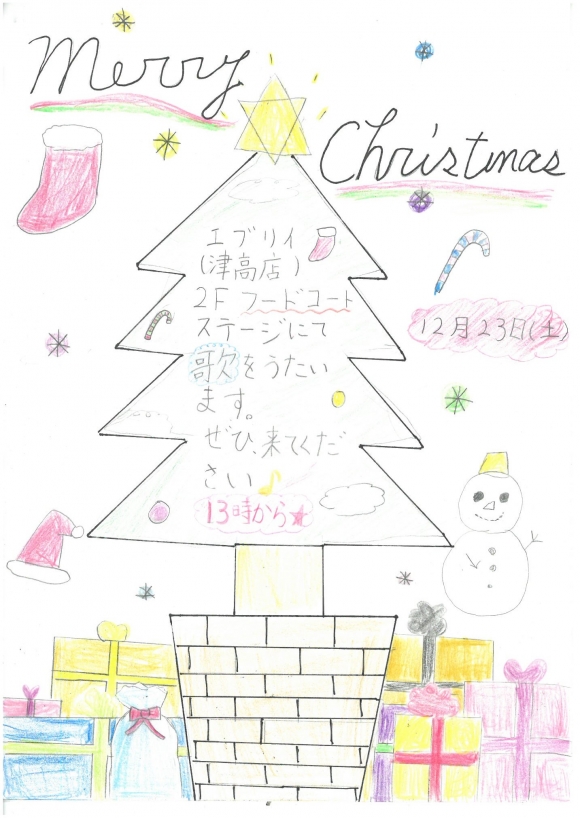 Merry
Christmas
エブリイ
(津高店)
2F フードコート
ステージにて
歌をうたい
ます。
ぜひ、来てくだ
さい♪
13時から★
12月23日(土)